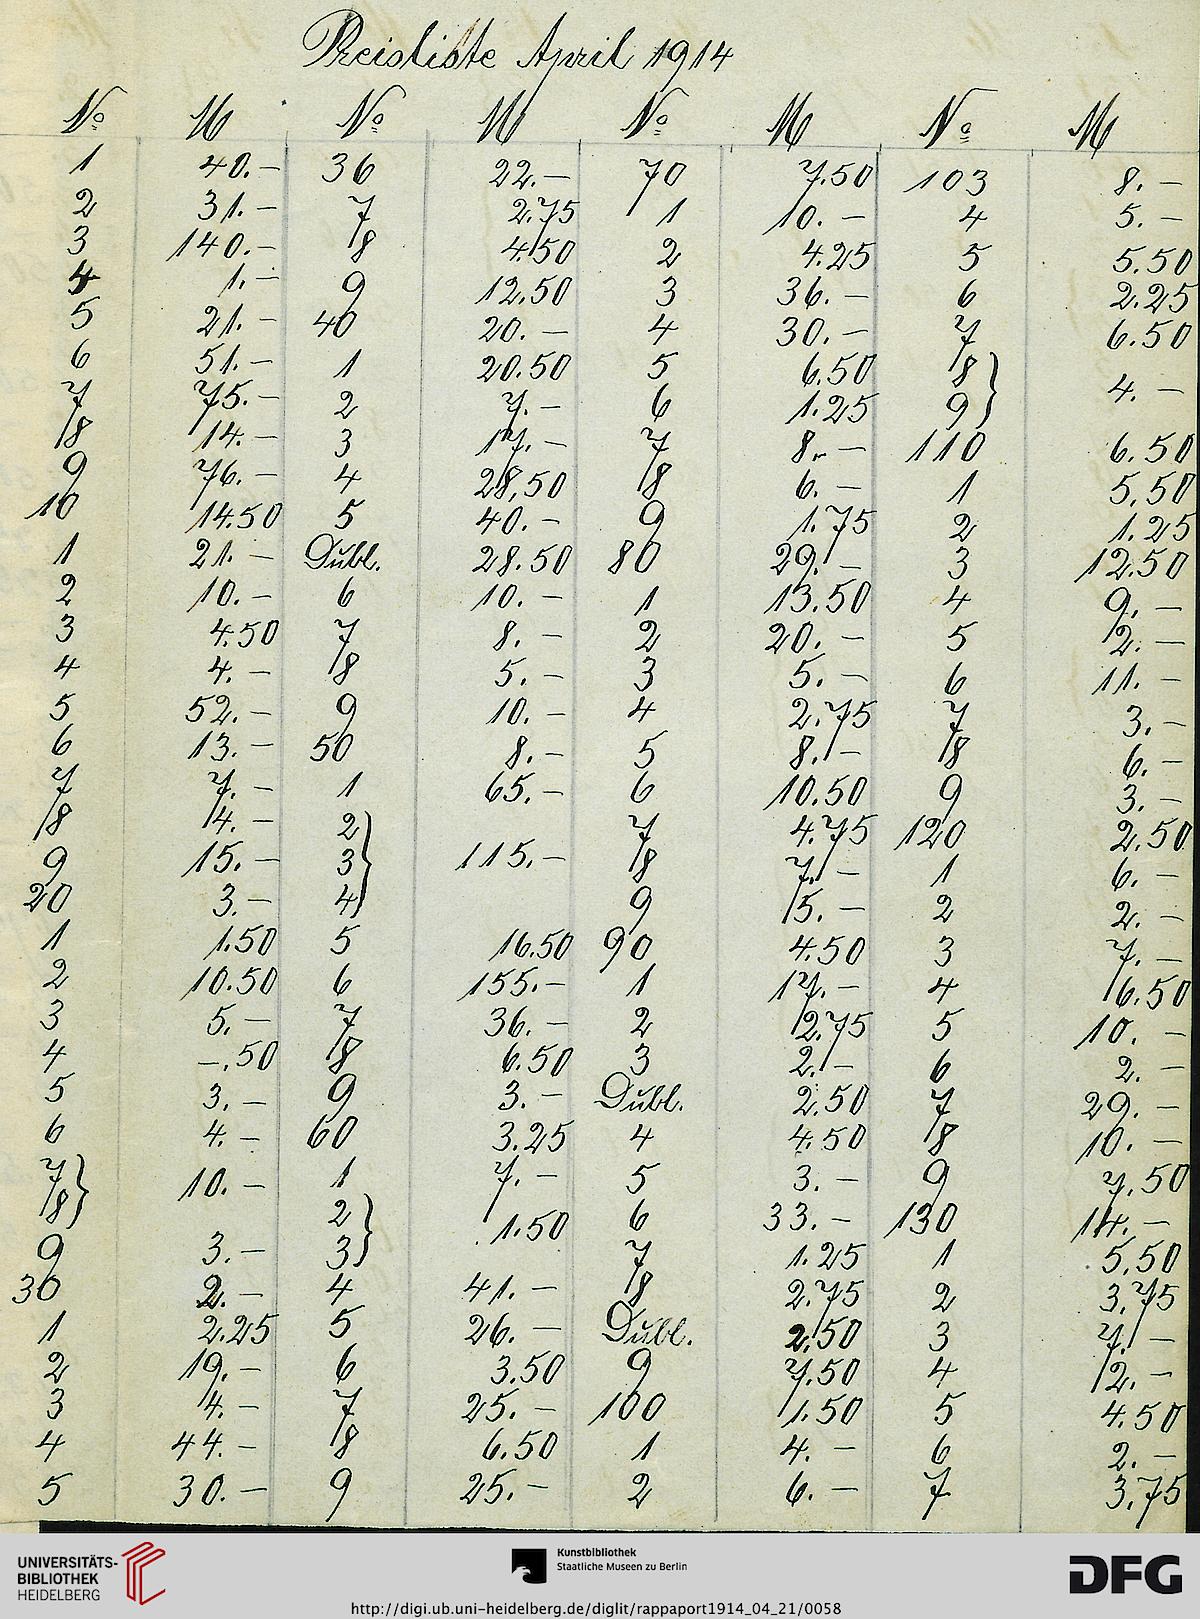 Preisliste April 1914
No M No M No M No M
1 40.– 36 22.– 70 7.50 103 8.–
2 31.– 7 2.75 1 10.– 4 5.–
3 140.– 8 4.50 2 4.25 5 5.50
4 1.– 9 12.50 3 36.– 6 2.25
5 21.– 40 20.– 4 30.– 7 6.50
6 51.– 1 20.50 5 6.50 8 } 4.–
7 75.– 2 7.– 6 1.25 9 }
8 14.– 3 17.– 7 8.– 110 6.50
9 76.– 4 28,50 8 6.– 1 5,50
10 14.50 5 40.– 9 1.75 2 1.25
1 21.– Dubl. 28.50 80 29.– 3 12.50
2 10.– 6 10.– 1 13.50 4 9.–
3 4.50 7 8.– 2 20.– 5 2.–
4 4.– 8 5.– 3 5.– 6 11.–
5 52.– 9 10.– 4 2.75 7 3.–
6 13.– 50 8.– 5 8.– 8 6.–
7 7.– 1 65.– 6 10.50 9 3.–
8 4.– 2 } 7 4.75 120 2.50
9 15.– 3 } 115.– 8 7.– 1 6.–
20 3.– 4 } 9 5.– 2 2.–
1 1.50 5 16.50 90 4.50 3 7.–
2 10.50 6 155.– 1 17.– 4 6.50
3 5.– 7 36.– 2 2.75 5 10.–
4 –.50 8 6.50 3 2.– 6 2.–
5 3.– 9 3.– Dubl. 2.50 7 29.–
6 4.– 60 3.25 4 4.50 8 10.–
7 } 10.– 1 7.– 5 3.– 9 7.50
8 } 2 } 1.50 6 33.– 130 14.–
9 3.– 3 } 7 1.25 1 5.50
30 2.– 4 41.– 8 2.75 2 3.75
1 2.25 5 26.– Dubl. 2.50 3 7.–
2 19.– 6 3.50 9 7.50 4 2.–
3 4.– 7 25.– 100 1.50 5 4.50
4 44.– 8 6.50 1 4.– 6 2.–
5 30.– 9 25.– 2 6.– 7 3.75
UNIVERSITÄTS-
BIBLIOTHEK
HEIDELBERG
Kunstbibliothek
Staatliche Museen zu Berlin
DFG
http://digi.ub.uni-heidelberg.de/diglit/rappaport1914_04_21/0058